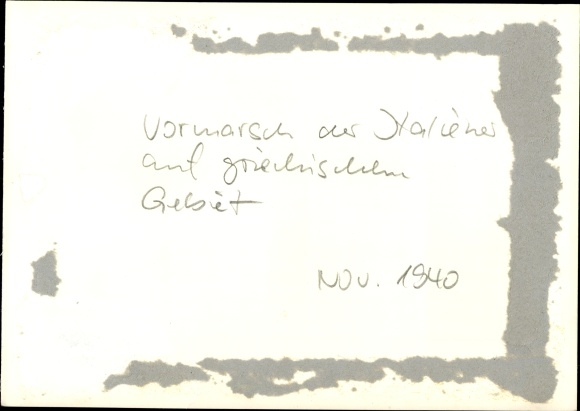 Vormarsch der Italiener
auf griechischem
Gebiet
Nov. 1940